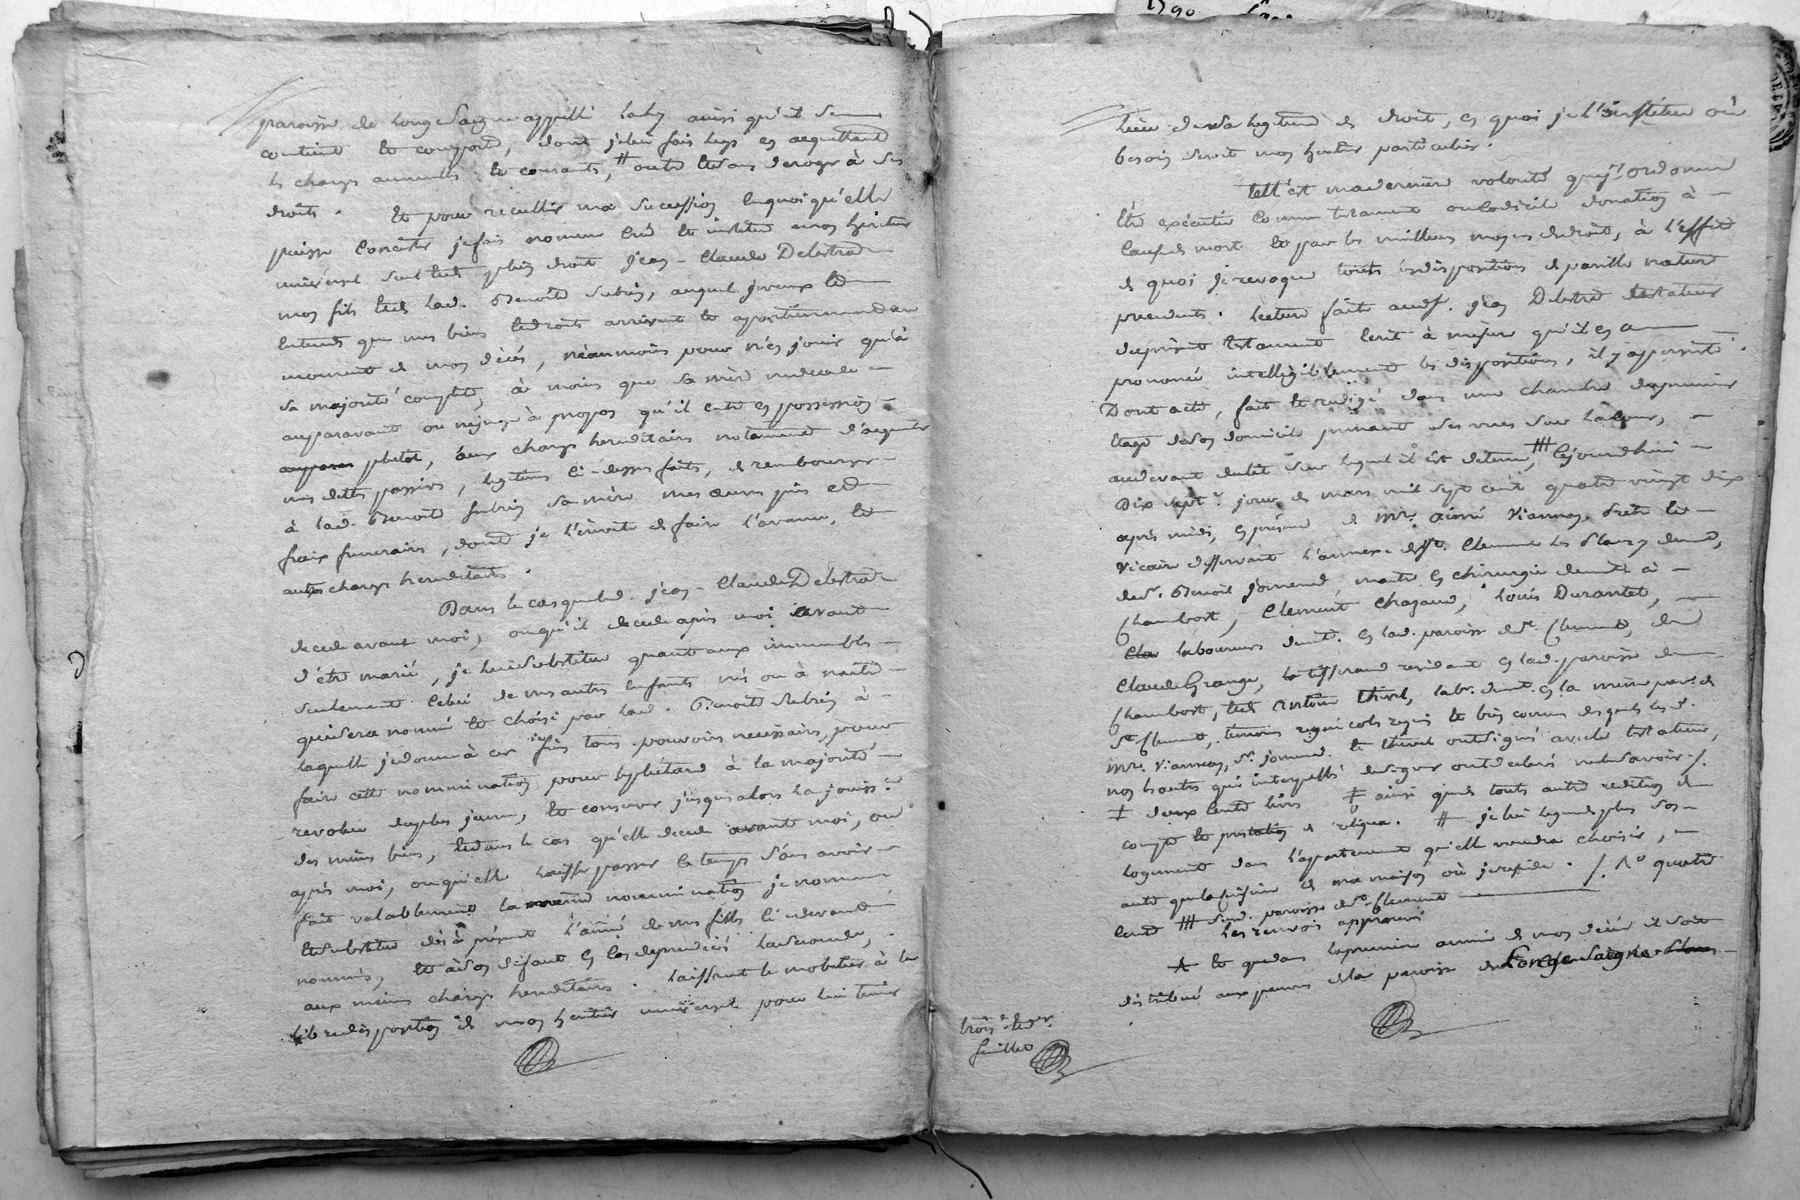 paroisse de Longesaigne appellé ainsi qu'il se
contient et comporte, dont je leur fais legs en acquittant
les charges annuelles et courantes, # outre et sans deroger à ses
droits. Et pour recuellir ma sucession en quoi qu'elle
puisse consister je fais nomme crée et institue mon heritier
universel seul et de plein droit Jean-Claude Delestra
mon fils et de lad. Benoite Subrin, auquel je veux et
entends que mes biens et droits arrivent et apartiennent au
moment de mon décès, néanmoins pour n'en jouir qu'à
sa majorité compléte, à moins que sa mère ne decede
auparavant ou ne juge à propos qu'il entre en possession
plutot, aux charges hereditaires notamment d'acquitter
mes dettes passives, legitimes ci-dessus faites, de rembourser
à lad. Benoite Subrin sa mère mes œuvres pies et
fraix funeraires, dont je l'invite de faire l'avance, et
autres charges hereditaires.
Dans le cas que led. Jean-Claude Delestra
decede avant moi, ou qu'il decede après moi avant
d'être marié, je lui substitue quant aux immeubles
seulement celui de mes autres enfants nés ou à naitre
qui sera nommé et choisi par lad. Benoite Subrin à
laquelle je donne à ces fins tous pouvoirs necessaires, pour
faire cette nomination, pour le plutard à la majorité
revolue du plus jeune, et conserver jusques alors la jouiss.ce
des mêmes biens, et dans le cas qu'elle decede avant moi, ou
après moi, ou qu'elle laisse passer le temps sans avoir
fait valablement la nomination je nomme
et substitue dès à présent l'ainé de mes fils ci devant
nommés, et à son defaut et les deprédécés la seconde,
aux mêmes charges hereditaires. laissant le mobilier à la
libre disposition de mon heritier universel pour lui tenir
lieu de sa legitime de droit, en quoi je l'institue où
besoin seroit mon heritier particulier.
Tell'est ma derniere volonté que j'ordonne
être exécutée comme testament ou codicile donation à
cause de mort et par les meilleurs moyens de droit, à l'effet
de quoi je revoque toutes dispositions de pareille nature
precedentes. Lecture faite aud. s. Jean Delestra testateur
du présent testament ecrit à mesure qu'il en a
prononcé intelligiblement les dispositions, il y a persisté.
Dont acte, fait et redigé dans une chambre du premier
etage de son domicile prenant ses vues sur la cour,
au devant du lit sur lequel il est detenu, ### cejourd'hui
Dix sept.e jour de mars mil sept cent quatre vingt dix
après midi, en presence de Mr. Vianney Pretre et
vicaire desservant l'annexe de St. Clement les Places y demt,
de s. Benoit Jomand, maitre en chirurgie demt à
Chambost, Clement Chazaud, Louis Durantet,
laboureurs demt. en lad. paroisse de St. Clement, de
Claude Grange, tisserand residant en lad. paroisse de
Chambost, et de Antoine Thivel, labr. demt. en la même par. de
St. Clement, temoins requis et bien connus desquels les d.
Mr. Vianney, s. Jomand. et Thivel ont signé avec le testateur,
non les autres qui interpellés de signer ont declaré ne le savoir./.
‡ deux cents livres ‡ ainsi que de toute autre redition de
compte et prestation de reliqua. # je lui legue de plus son
logement dans l'apartement qu'elle voudra choisir,
autre que la cuisine de ma maison où je reside. /. 1° quatre
cents ### sur lad. paroisse de St. Clement
Les renvois approuvés
et que dans la premiere année de mon décès il soit
distribué aux pauvres de la paroisse de Longe Saigne
trois.e et der
feuillet